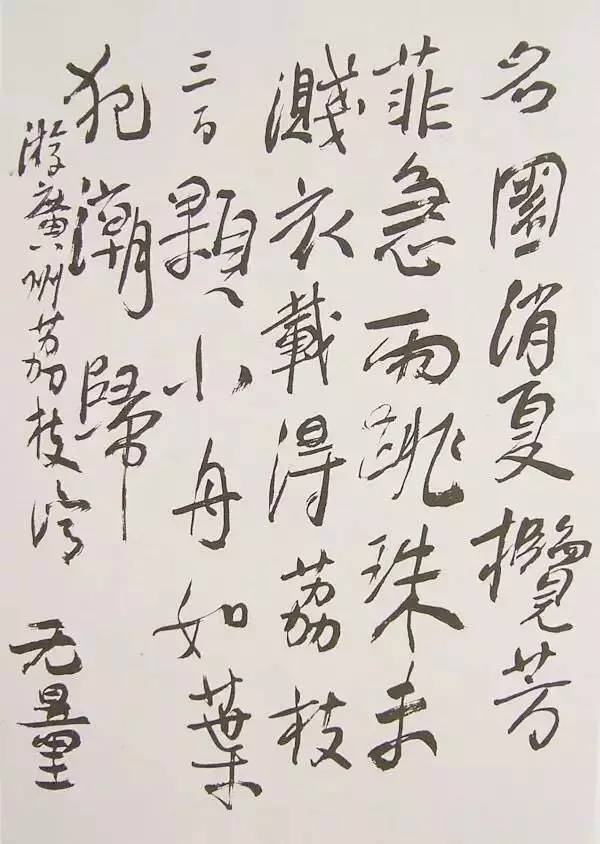 名園消夏欖芳
菲急雨跳珠未
濺衣載得荔枝
三百顆小舟如葉
犯潮歸
游廣州荔枝灣 无量